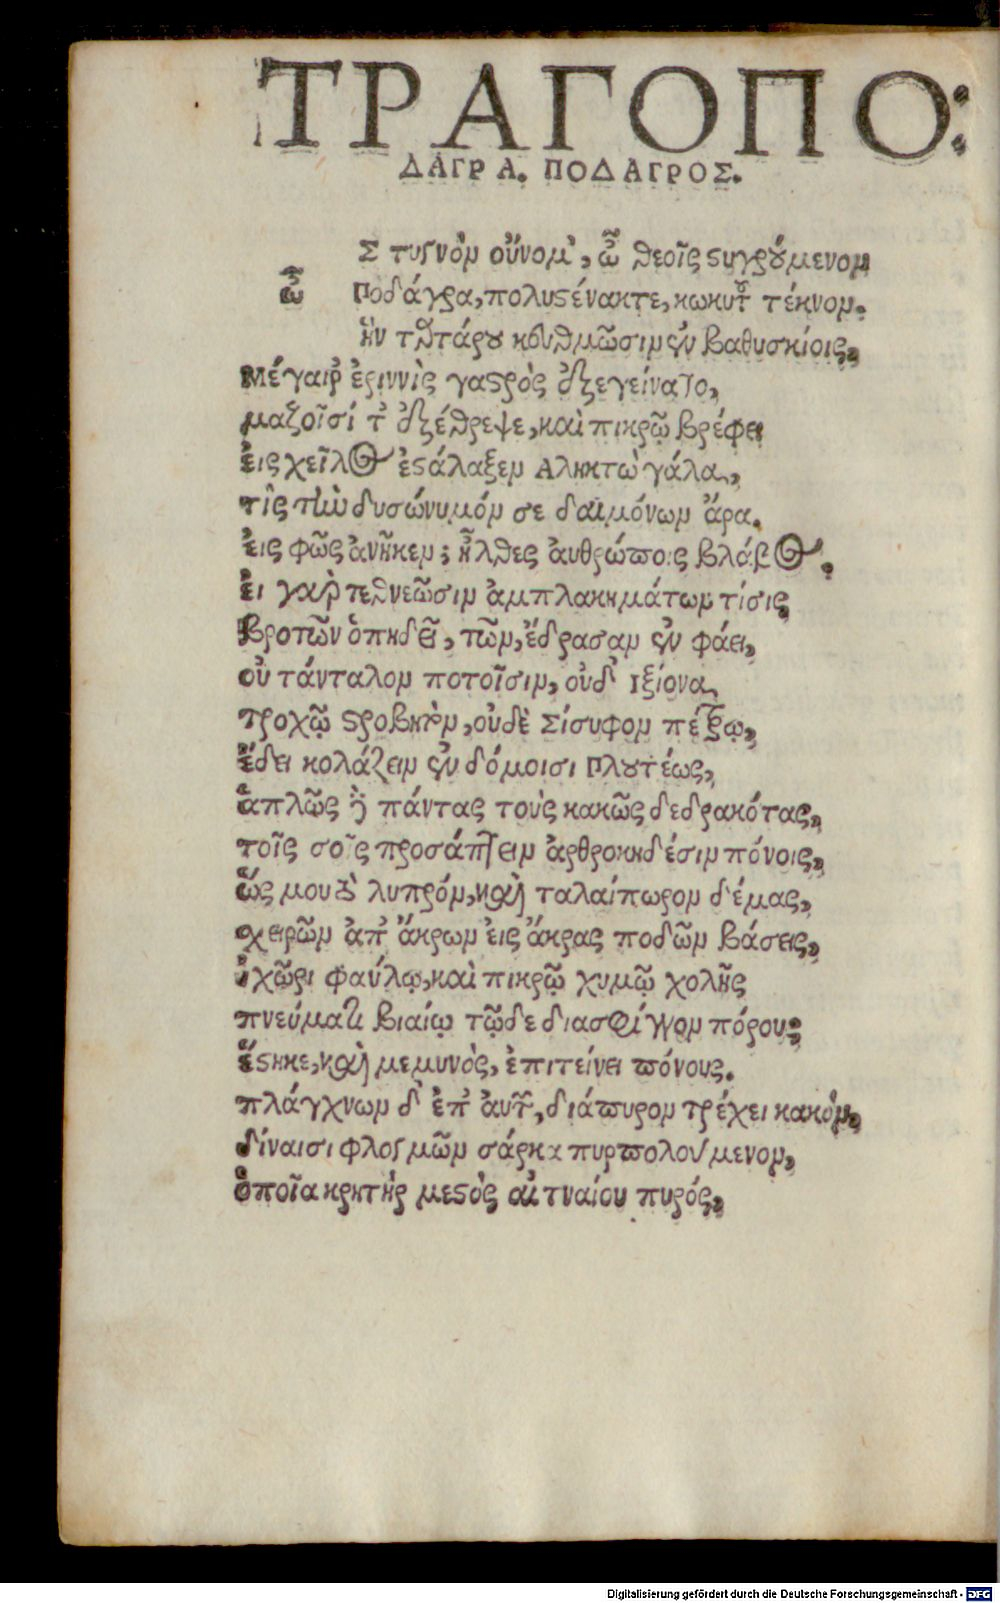 ΤΡΑΓΟΠΟ:
ΔΑΓΡΑ. ΠΟΔΑΓΡΟΣ.
ὦ
Στυγνὸν οὔνομ', ὦ θεοῖς στυγούμενον
Ποδάγρα, πολυστένακτε, κωκυτοῦ τέκνον.
ἣν ταρτάρου κευθμῶσιν ἐν βαθυσκίοις,
Μέγαιρ' ἐριννὺς γαστρὸς ἐξεγείνατο,
μαζοῖσί τ' ἐξέθρεψε, καὶ πικρῷ βρέφει
ἐις χεῖλος ἐστάλαξεν Αληκτὼ γάλα,
τίς τὴν δυσώνυμόν σε δαιμόνων ἄρα.
ἐις φῶς ἀνῆκεν; ἦλθες ἀνθρώποις βλάβος.
ἐι γὰρ τεθνεῶσιν ἀμπλακημάτων τίσις
βροτῶν ὀπηδεῖ, τῶν, ἔδρασαν ἐν φάει,
οὐ τάνταλον ποτοῖσιν, οὐδ' Ιξίονα
τροχῷ στροβητὸν, οὐδὲ Σίσυφον πέτρῳ,
ἔδει κολάζειν ἐν δόμοισι Πλουτέως,
ἁπλῶς δὲ πάντας τοὺς κακῶς δεδρακότας,
τοῖς σοῖς προσάπτειν ἀρθροκηδέσιν πόνοις,
ὥς μου τὸ λυπρόν, καὶ ταλαίπωρον δέμας,
χειρῶν ἀπ' ἄκρων ἐις ἄκρας ποδῶν βάσεις,
ἰχῶρι φαύλῳ, καὶ πικρῷ χυμῷ χολῆς
πνεύματι βιαίῳ τῷδε διασφίγγον πόρους
ἕστηκε, καὶ μεμυνὸς, ἐπιτείνει πόνους.
πλάγχνων δ' ἐπ' ἀυτῶν, διάπυρον τρέχει κακόν,
δίναισι φλογμῶν σάρκα πυρπολούμενον,
ὁποῖα κρητὴρ μεστὸς αἰτναίου πυρός,
Digitalisierung gefördert durch die Deutsche Forschungsgemeinschaft - DFG